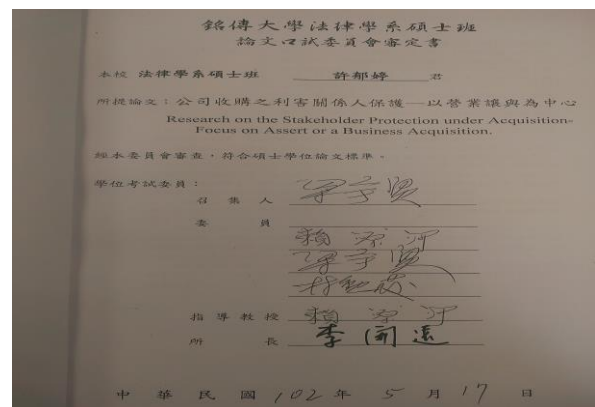 銘傳大學法律學系碩士班
論文口試委員會審定書
本校 法律學系碩士班 許郁婷 君
所提論文：公司收購之利害關係人保護—以營業讓與為中心
Research on the Stakeholder Protection under Acquisition-
Focus on Assert or a Business Acquisition.
經本委員會審查，符合碩士學位論文標準。
學位考試委員：
召集人 梁宇賢
委員
賴源河
梁宇賢
指導教授 賴源河
所長 李開遠
中華民國 102 年 5 月 17 日